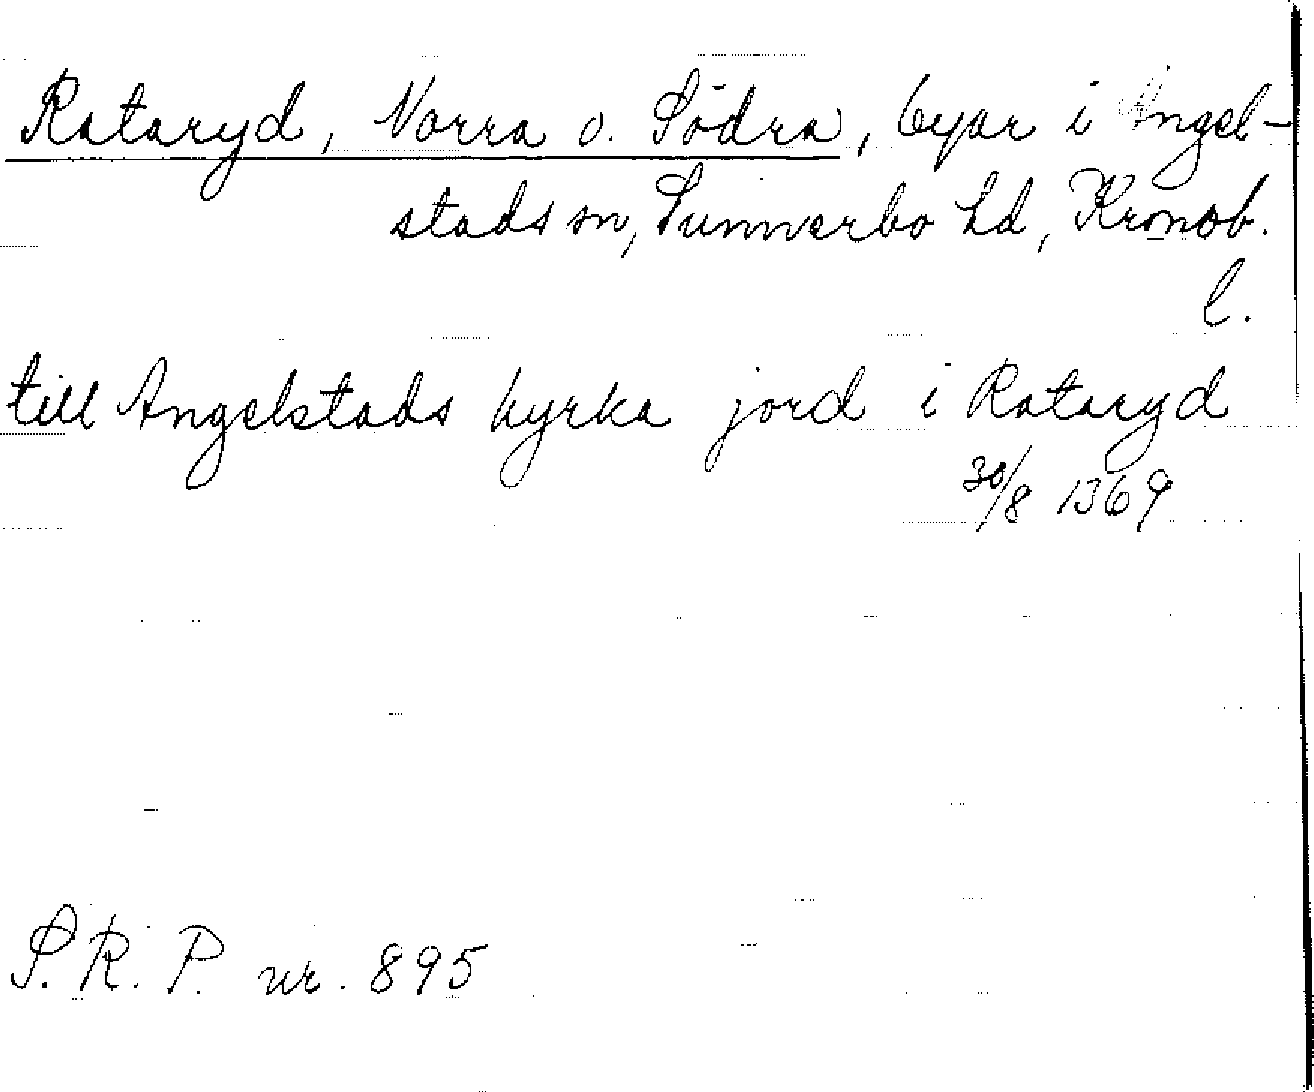 Rataryd, Norra o. Södra, byar i Angel-
stads sn, Sunnerbo hd, Kronob.
l.
till Angelstads kyrka jord i Rataryd
30/8 1369
S.R.P. nr. 895